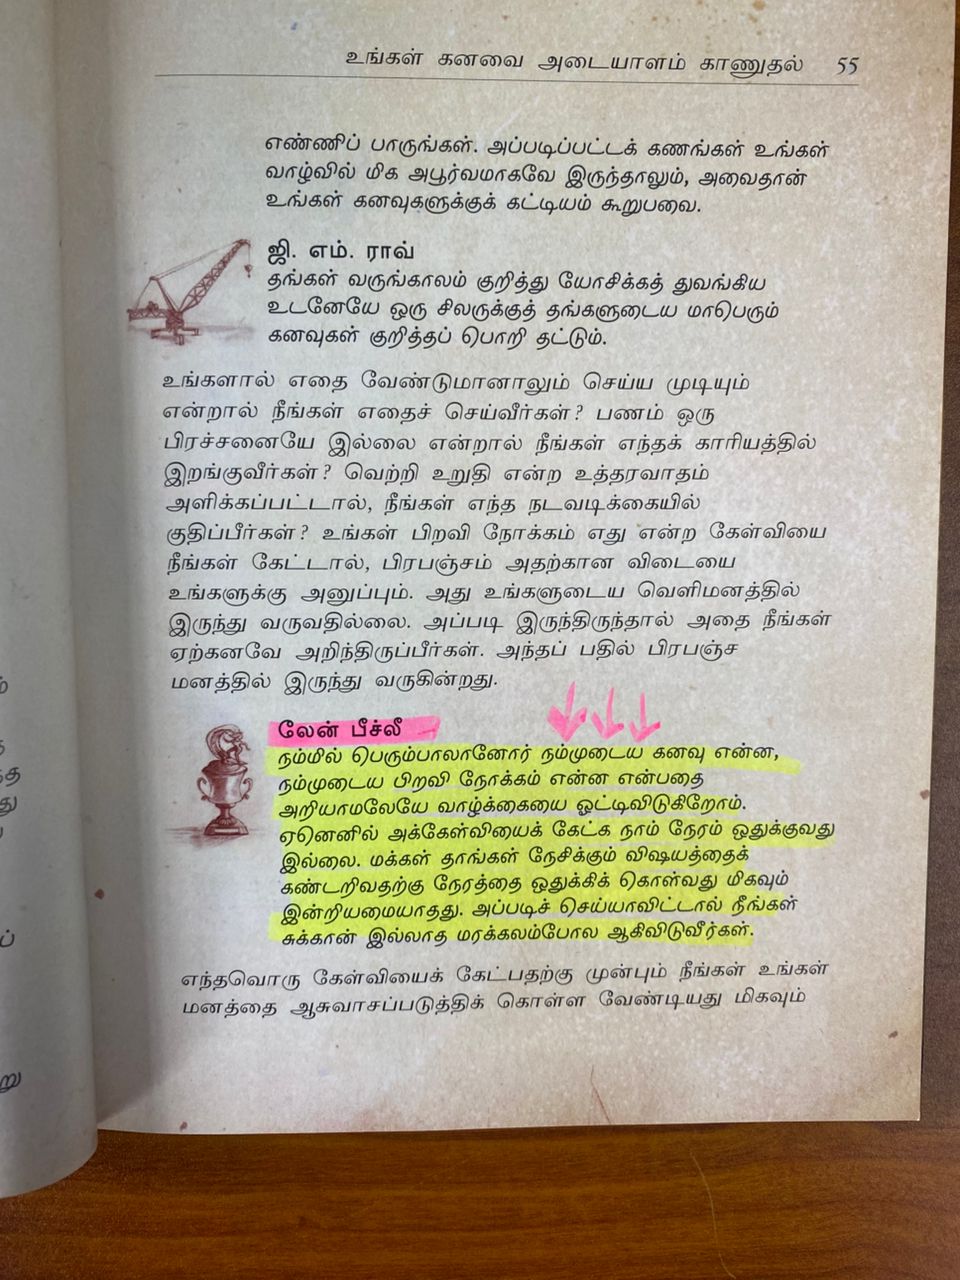 உங்கள் கனவை அடையாளம் காணுதல் 55
எண்ணிப் பாருங்கள். அப்படிப்பட்டக் கணங்கள் உங்கள்
வாழ்வில் மிக அபூர்வமாகவே இருந்தாலும், அவைதான்
உங்கள் கனவுகளுக்குக் கட்டியம் கூறுபவை.
ஜி. எம். ராவ்
தங்கள் வருங்காலம் குறித்து யோசிக்கத் துவங்கிய
உடனேயே ஒரு சிலருக்குத் தங்களுடைய மாபெரும்
கனவுகள் குறித்தப் பொறி தட்டும்.
உங்களால் எதை வேண்டுமானாலும் செய்ய முடியும்
என்றால் நீங்கள் எதைச் செய்வீர்கள்? பணம் ஒரு
பிரச்சனையே இல்லை என்றால் நீங்கள் எந்தக் காரியத்தில்
இறங்குவீர்கள்? வெற்றி உறுதி என்ற உத்தரவாதம்
அளிக்கப்பட்டால், நீங்கள் எந்த நடவடிக்கையில்
குதிப்பீர்கள்? உங்கள் பிறவி நோக்கம் எது என்ற கேள்வியை
நீங்கள் கேட்டால், பிரபஞ்சம் அதற்கான விடையை
உங்களுக்கு அனுப்பும். அது உங்களுடைய வெளிமனத்தில்
இருந்து வருவதில்லை. அப்படி இருந்திருந்தால் அதை நீங்கள்
ஏற்கனவே அறிந்திருப்பீர்கள். அந்தப் பதில் பிரபஞ்ச
மனத்தில் இருந்து வருகின்றது.
லேன் பீச்லீ
நம்மில் பெரும்பாலானோர் நம்முடைய கனவு என்ன,
நம்முடைய பிறவி நோக்கம் என்ன என்பதை
அறியாமலேயே வாழ்க்கையை ஓட்டிவிடுகிறோம்.
ஏனெனில் அக்கேள்வியைக் கேட்க நாம் நேரம் ஒதுக்குவது
இல்லை. மக்கள் தாங்கள் நேசிக்கும் விஷயத்தைக்
கண்டறிவதற்கு நேரத்தை ஒதுக்கிக் கொள்வது மிகவும்
இன்றியமையாதது. அப்படிச் செய்யாவிட்டால் நீங்கள்
சுக்கான் இல்லாத மரக்கலம்போல ஆகிவிடுவீர்கள்.
எந்தவொரு கேள்வியைக் கேட்பதற்கு முன்பும் நீங்கள் உங்கள்
மனத்தை ஆசுவாசப்படுத்திக் கொள்ள வேண்டியது மிகவும்